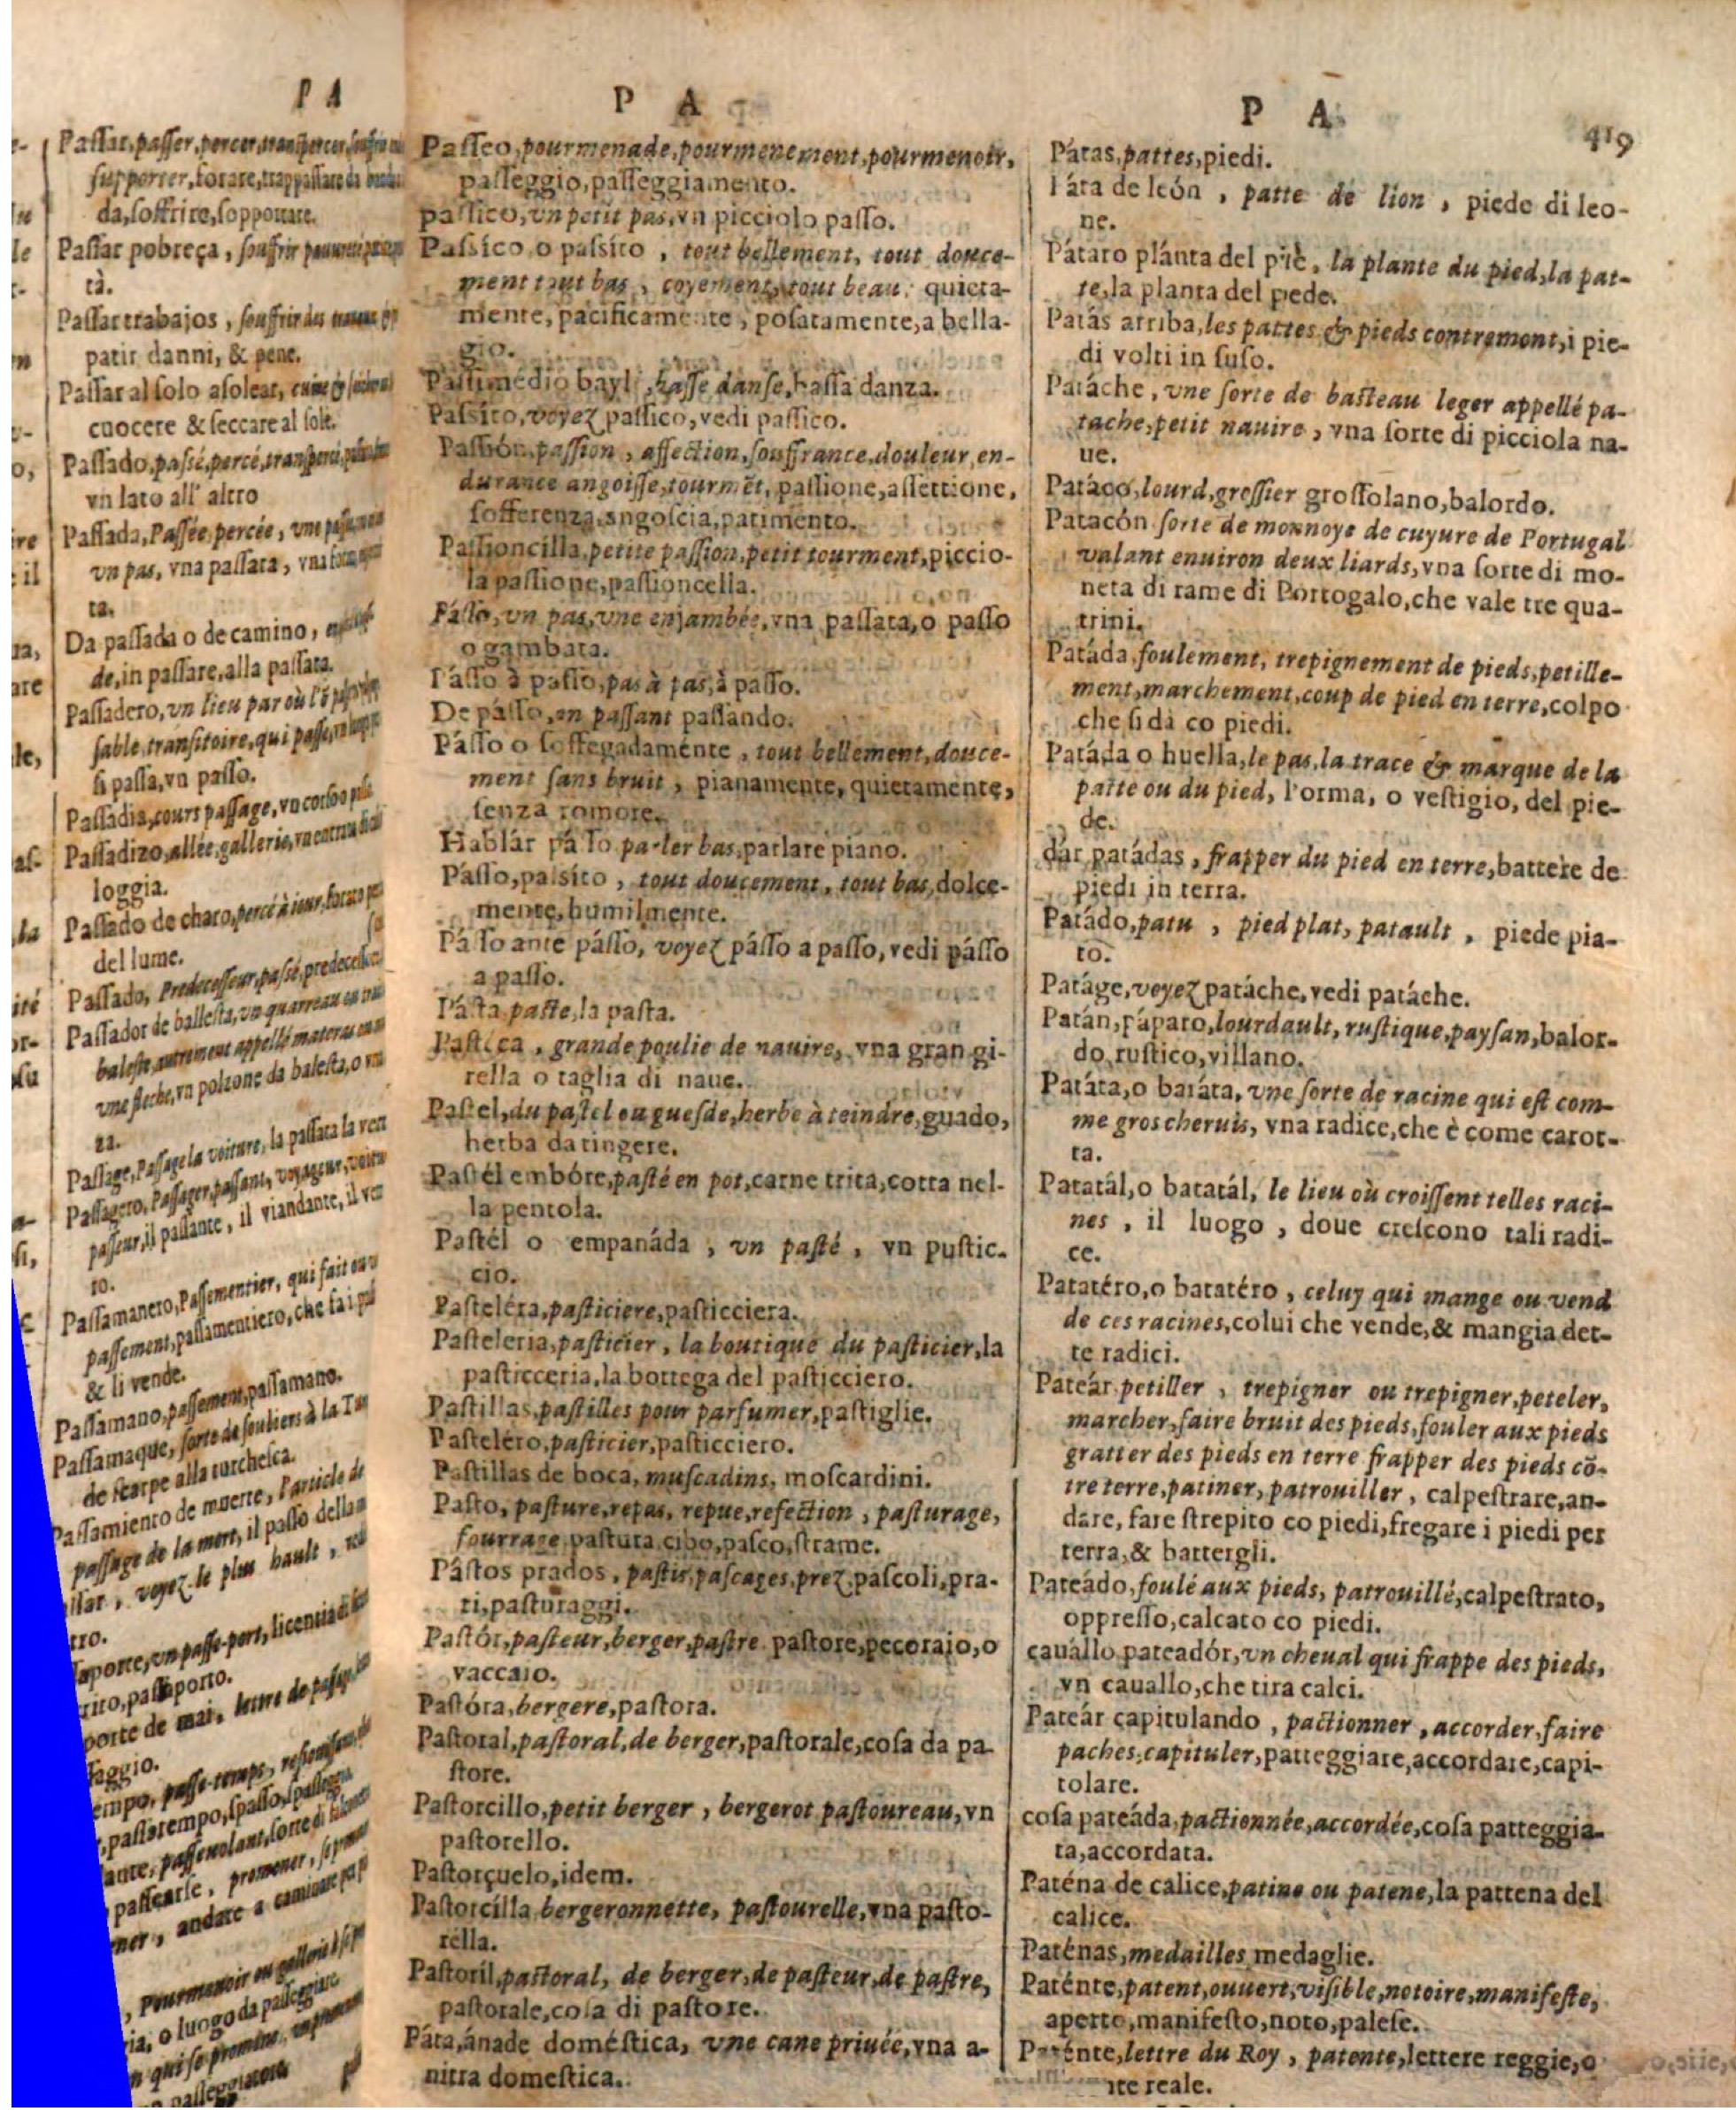 P A
Passar, passer, percer, transpercer,
supporter, forare, trappassare da
da, soffrire, sopportare.
Passar pobreça, souffrir
tà.
Passar trabajos, souffrir des
patir danni, & pene.
Passar al solo asolear,
cuocere & seccare al sole.
Passado, passé, percé, transpercé,
vn lato all' altro
Passada, Passée, percée, vne
vn pas, vna passata, vna
ta.
Da passada o de camino,
de, in passare, alla passata.
Passadero, vn lieu par où l'ō
sable, transitoire, qui passe,
si passa, vn passo.
Passadia, cours passage, vn corso o
Passadizo, allée, gallerie,
loggia.
Passado de charo, percé à iour, forato
del lume.
Passado, Predecesseur, passé,
Passador de ballesta, vn quarreau
baleste, autrement appellé materas
vne fleche, vn polzone da balesta, o vn
za.
Passage, Passage la voiture, la passata la
Passagero, Passager, passant, voyageur,
passeur, il passante, il viandante, il
ro.
Passamanero, Passementier, qui fait
passement, passamentiero, che fa i
& li vende.
Passamano, passement, passamano.
Passamaque, sorte de souliers à la
de scarpe alla turchesca.
Passamiento de muerte, l'article de
passage de la mort, il passo della
voyez le plus hault,
tro.
vn passe-port,
passaporto.
porte de mai, lettre de
passe-temps,
passatempo, spasso,
passevolant, sorte di
passearse, promener,
andare a caminare
Pourmenoir ou gallerie
o luogo da passeggiare
qui se promene,
P A
Passeo, pourmenade, pourmenement, pourmenoir,
passeggio, passeggiamento.
passico, vn petit pas, vn picciolo passo.
Passíco, o passíto, tout bellement, tout douce-
ment tout bas, coyement, tout beau, quieta-
mente, pacificamente, posatamente, a bella-
gio.
basse danse, bassa danza.
Passíto, voyez passico, vedi passico.
Passión, passion, affection, souffrance, douleur, en-
durance angoisse, tourmẽt, passione, affettione,
sofferenza, angoscia, patimento.
Passioncilla, petite passion, petit tourment, piccio-
la passione, passioncella.
Pásso, vn pas, vne enjambée, vna passata, o passo
o gambata.
Pásso à passo, pas à pas, à passo.
De pásso, en passant passando.
Pásso o sossegadaménte, tout bellement, douce-
ment sans bruit, pianamente, quietamente,
senza romore.
Hablár pásso parler bas, parlare piano.
Pásso, passíto, tout doucement, tout bas, dolce-
mente, humilmente.
Pásso ante pásso, voyez pásso a passo, vedi pásso
a passo.
Pásta paste, la pasta.
Pastéca, grande poulie de nauire, vna gran gi-
rella o taglia di naue.
Pastel, du pastel ou guesde, herbe à teindre, guado,
herba da tingere.
Pastél embóte, pasté en pot, carne trita, cotta nel-
la pentola.
Pastél o empanáda, vn pasté, vn pustic-
cio.
Pasteléra, pasticiere, pasticciera.
Pasteleria, pasticier, la boutique du pasticier, la
pasticceria, la bottega del pasticciero.
Pastillas, pastilles pour parfumer, pastiglie.
Pasteléro, pasticier, pasticciero.
Pastillas de boca, muscadins, moscardini.
Pasto, pasture, repas, repue, refection, pasturage,
fourrage pastura cibo, pasco, strame.
Pástos prados, pastis, pascages, prez, pascoli, pra-
ti, pasturaggi.
Pastór, pasteur, berger, pastre pastore, pecoraio, o
vaccaio.
Pastóra, bergere, pastora.
Pastoral, pastoral, de berger, pastorale, cosa da pa-
store.
Pastorcillo, petit berger, bergerot pastoureau, vn
pastorello.
Pastorçuelo, idem.
Pastorcílla bergeronnette, pastourelle, vna pasto-
rella.
Pastoríl, pastoral, de berger, de pasteur, de pastre,
pastorale, cosa di pastore.
Páta, ánade doméstica, vne cane priuée, vna a-
nitra domestica.
P A
419
Pátas, pattes, piedi.
Páta de león, patte de lion, piede di leo-
ne.
Pátaro plánta del piè, la plante du pied, la pat-
te, la planta del pede.
Patás arriba, les pattes & pieds contremont, i pie-
di volti in suso.
Patáche, vne sorte de basteau leger appellé pa-
tache, petit nauire, vna sorte di picciola na-
ue.
Patáco, lourd, grossier grossolano, balordo.
Patacón sorte de monnoye de cuyure de Portugal
valant enuiron deux liards, vna sorte di mo-
neta di rame di Portogalo, che vale tre qua-
trini.
Patáda foulement, trepignement de pieds, petille-
ment, marchement, coup de pied en terre, colpo
che si dà co piedi.
Patáda o huella, le pas, la trace & marque de la
patte ou du pied, l'orma, o vestigio, del pie-
de.
dár patádas, frapper du pied en terre, battere de
piedi in terra.
Patádo, patu, pied plat, patault, piede pia-
to.
Patáge, voyez patáche, vedi patáche.
Patán, páparo, lourdault, rustique, paysan, balor-
do, rustico, villano.
Patáta, o batáta, vne sorte de racine qui est com-
me gros cheruis, vna radice, che è come carot-
ta.
Patatál, o batatál, le lieu où croissent telles raci-
nes, il luogo, doue crescono tali radi-
ce.
Patatéro, o batatéro, celuy qui mange ou vend
de ces racines, colui che vende, & mangia det-
te radici.
Pateár petiller, trepigner ou trepigner, peteler,
marcher, faire bruit des pieds, fouler aux pieds
gratter des pieds en terre frapper des pieds cõ-
tre terre, patiner, patrouiller, calpestrare, an-
dare, fare strepito co piedi, fregare i piedi per
terra, & battergli.
Pateádo, foulé aux pieds, patrouillé, calpestrato,
oppresso, calcato co piedi.
cauállo pateadór, vn cheual qui frappe des pieds,
vn cauallo, che tira calci.
Pateár capitulando, pactionner, accorder, faire
paches, capituler, patteggiare, accordare, capi-
tolare.
cosa pateáda, pactionnée, accordée, cosa patteggia-
ta, accordata.
Paténa de calice, patine ou patene, la pattena del
calice.
Paténas, medailles medaglie.
Paténte, patent, ouuert, visible, notoire, manifeste,
aperto, manifesto, noto, palese.
Paténte, lettre du Roy, patente, lettere reggie, o
reale.